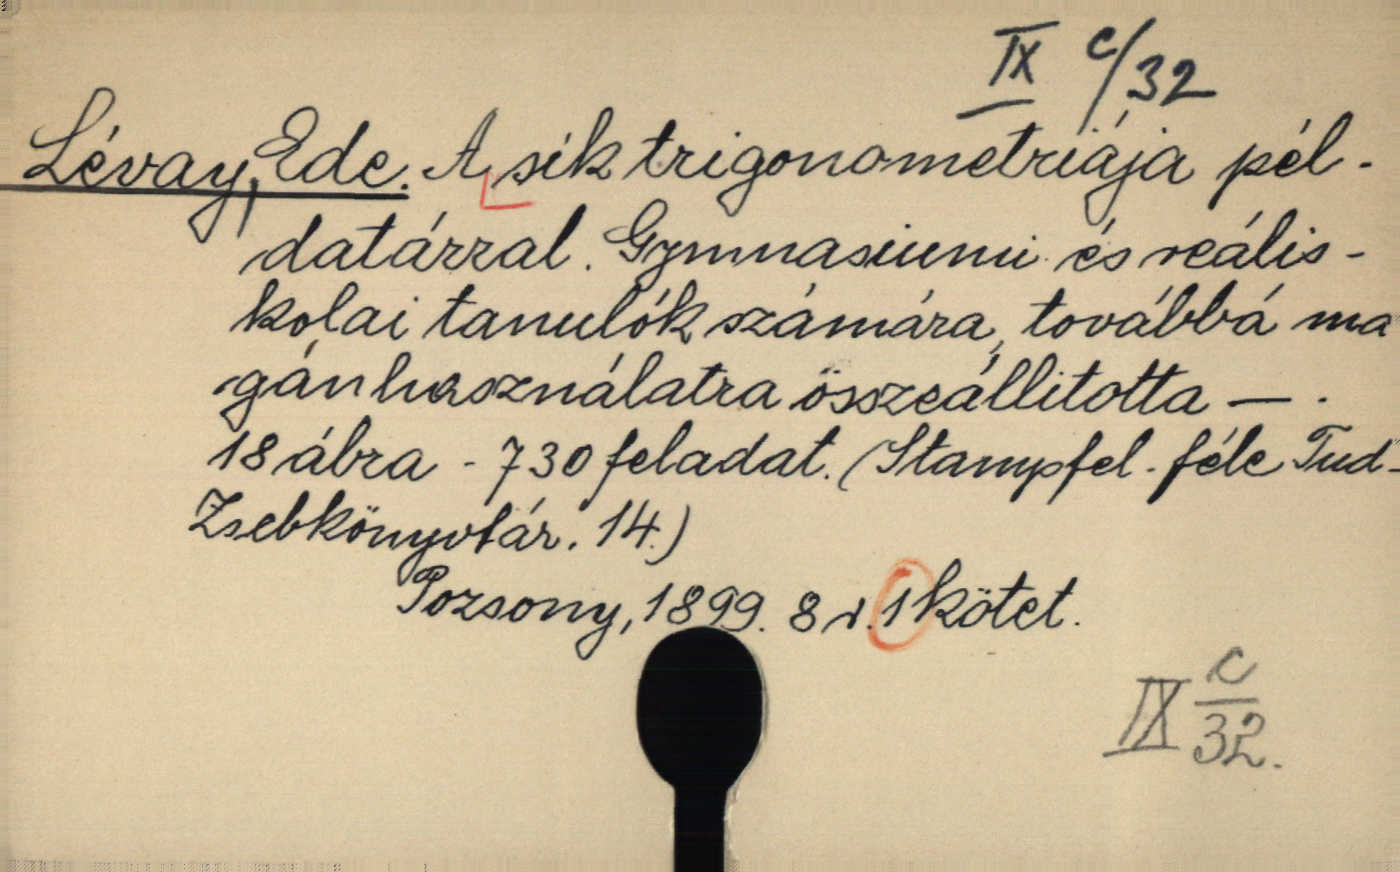 IX c/32
Lévay, Ede. A sík trigonometriája pél-
datárral. Gymnasiumi és reális-
kolai tanulók számára, továbbá ma
gánhasználatra összeállitotta — .
18 ábra - 730 feladat. (Stampfel-féle Tud-
Zsebkönyvtár. 14.)
Pozsony, 1899. 8 r. 1 kötet.
IX c/32.